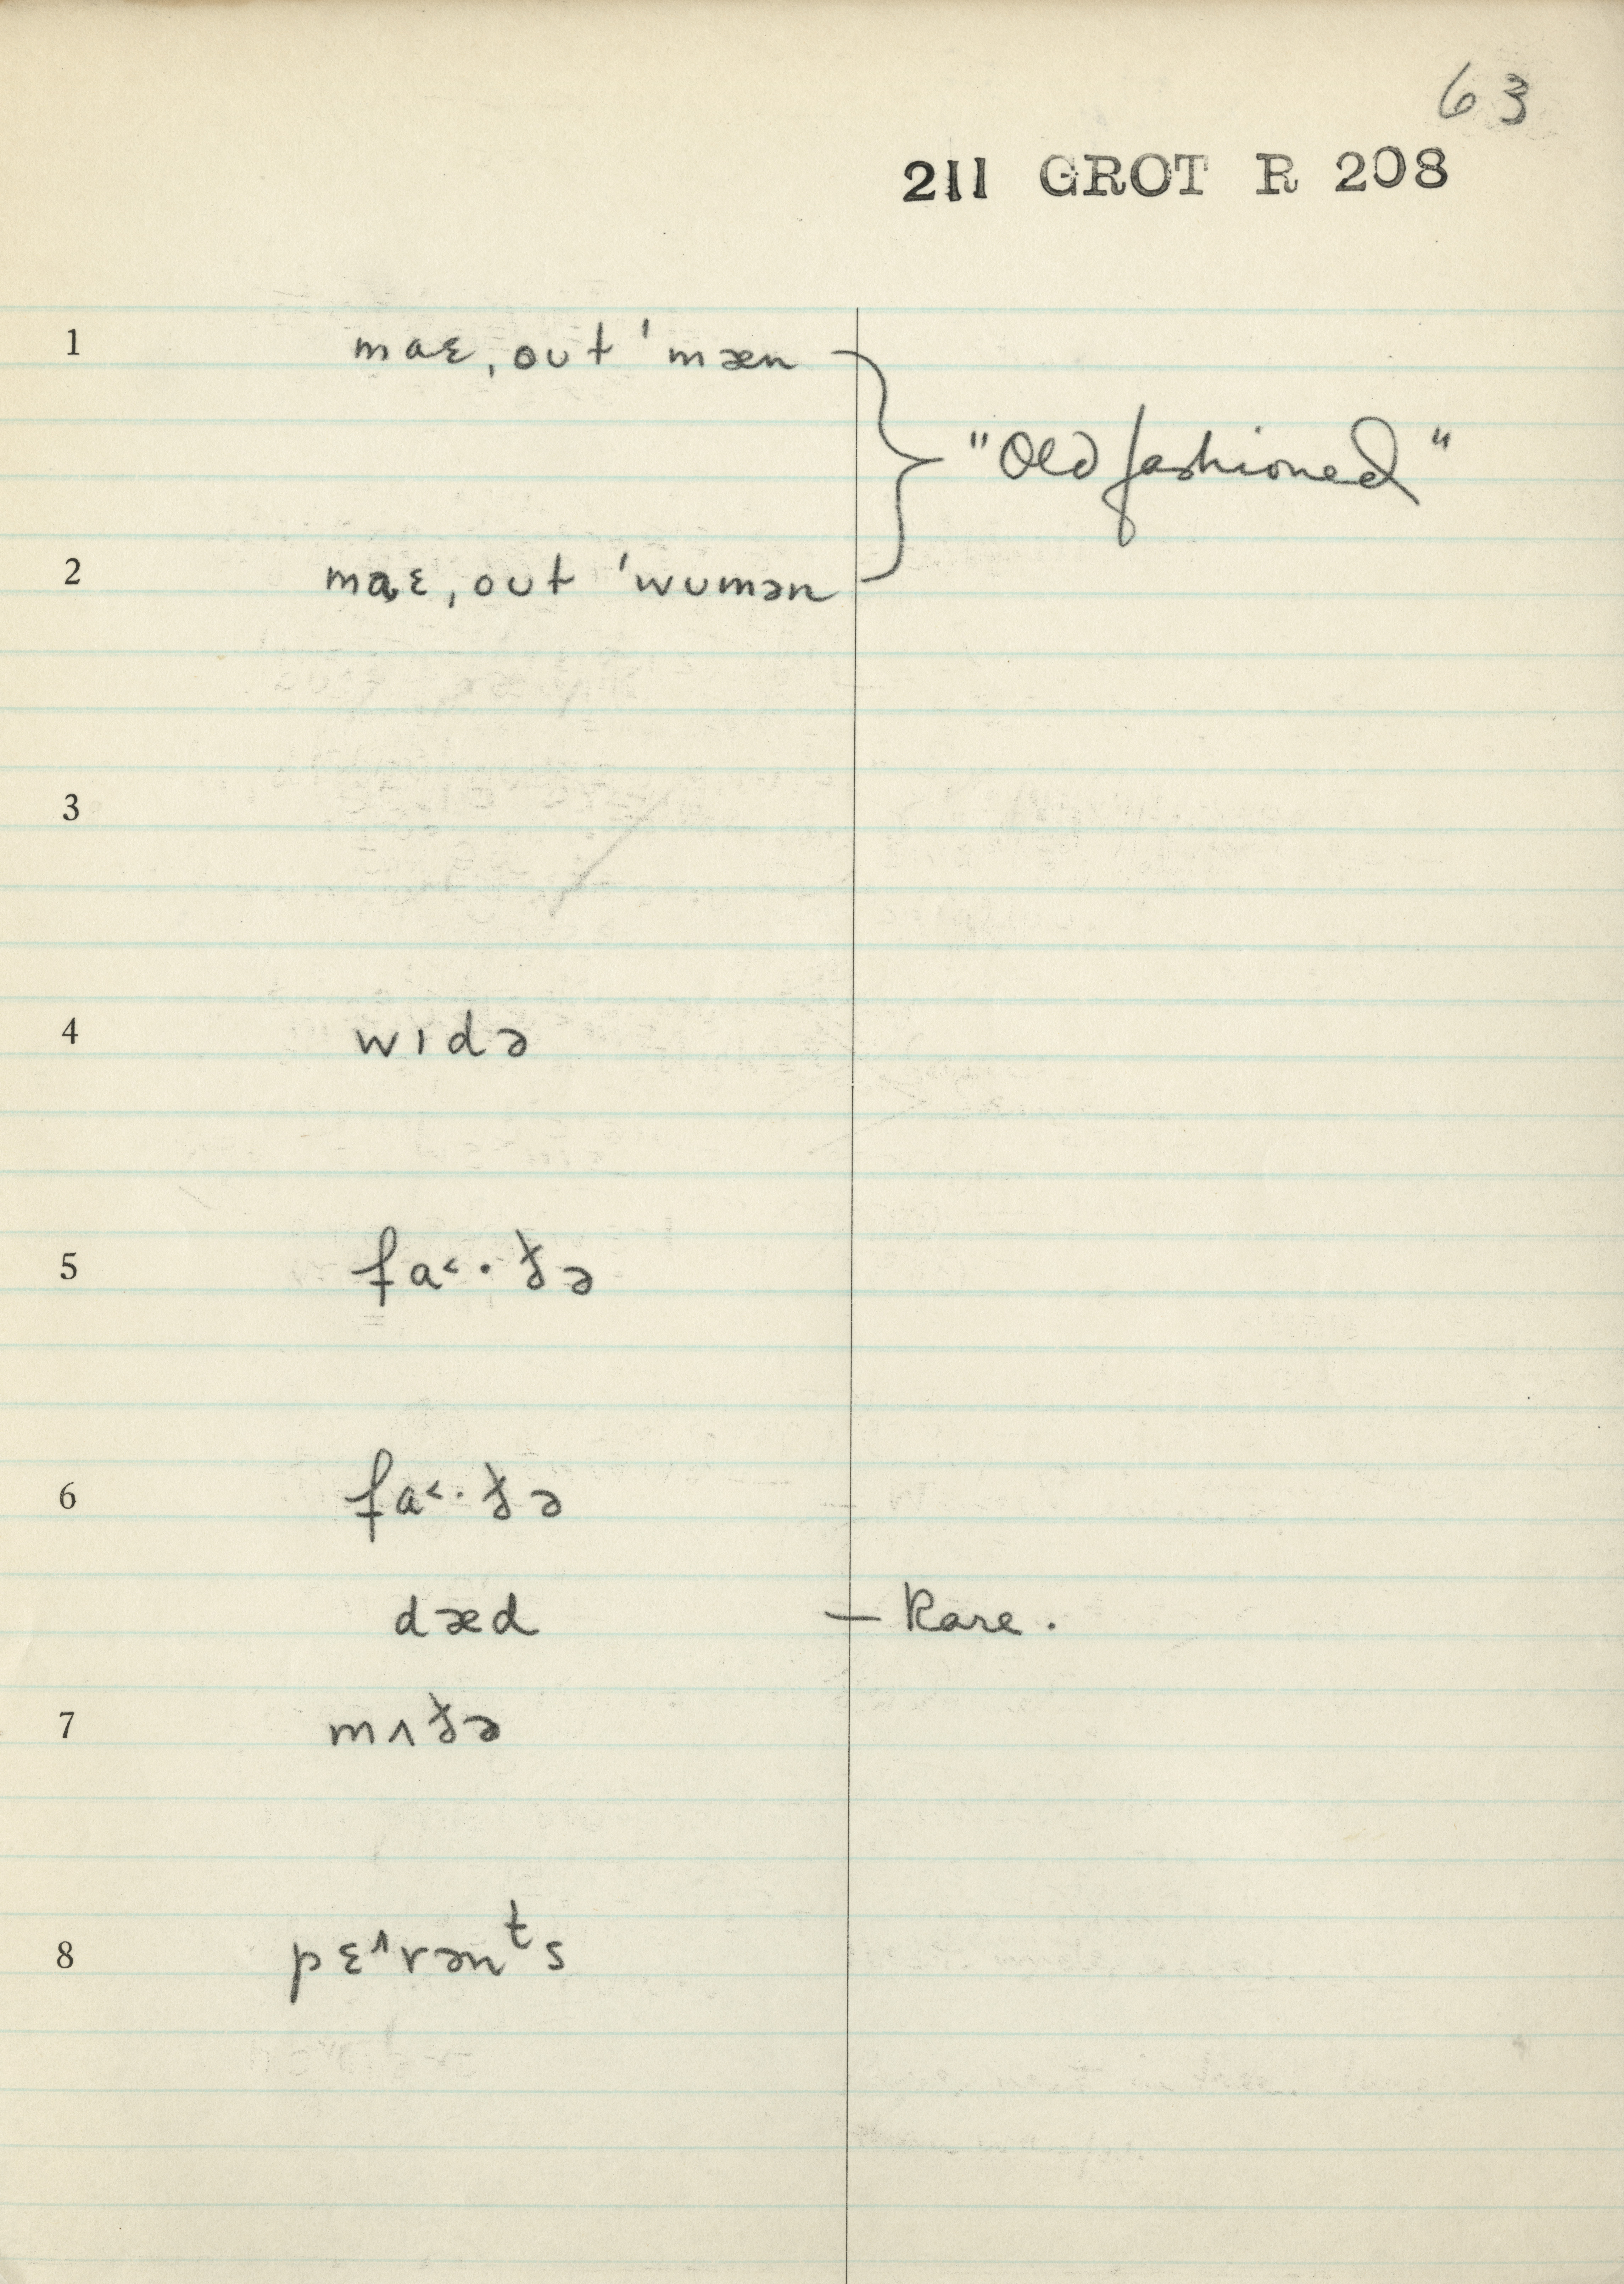 63
211 GROT R 208
1 maɛ ˌout ˈmæn
"Old fashioned"
2 maɛ ˌout ˈwumən
3
4 wɪdə
5 fa˂·ðə
6 fa˂·ðə
dæd — Rare.
7 mʌðə
8 pɛ^rənᵗs